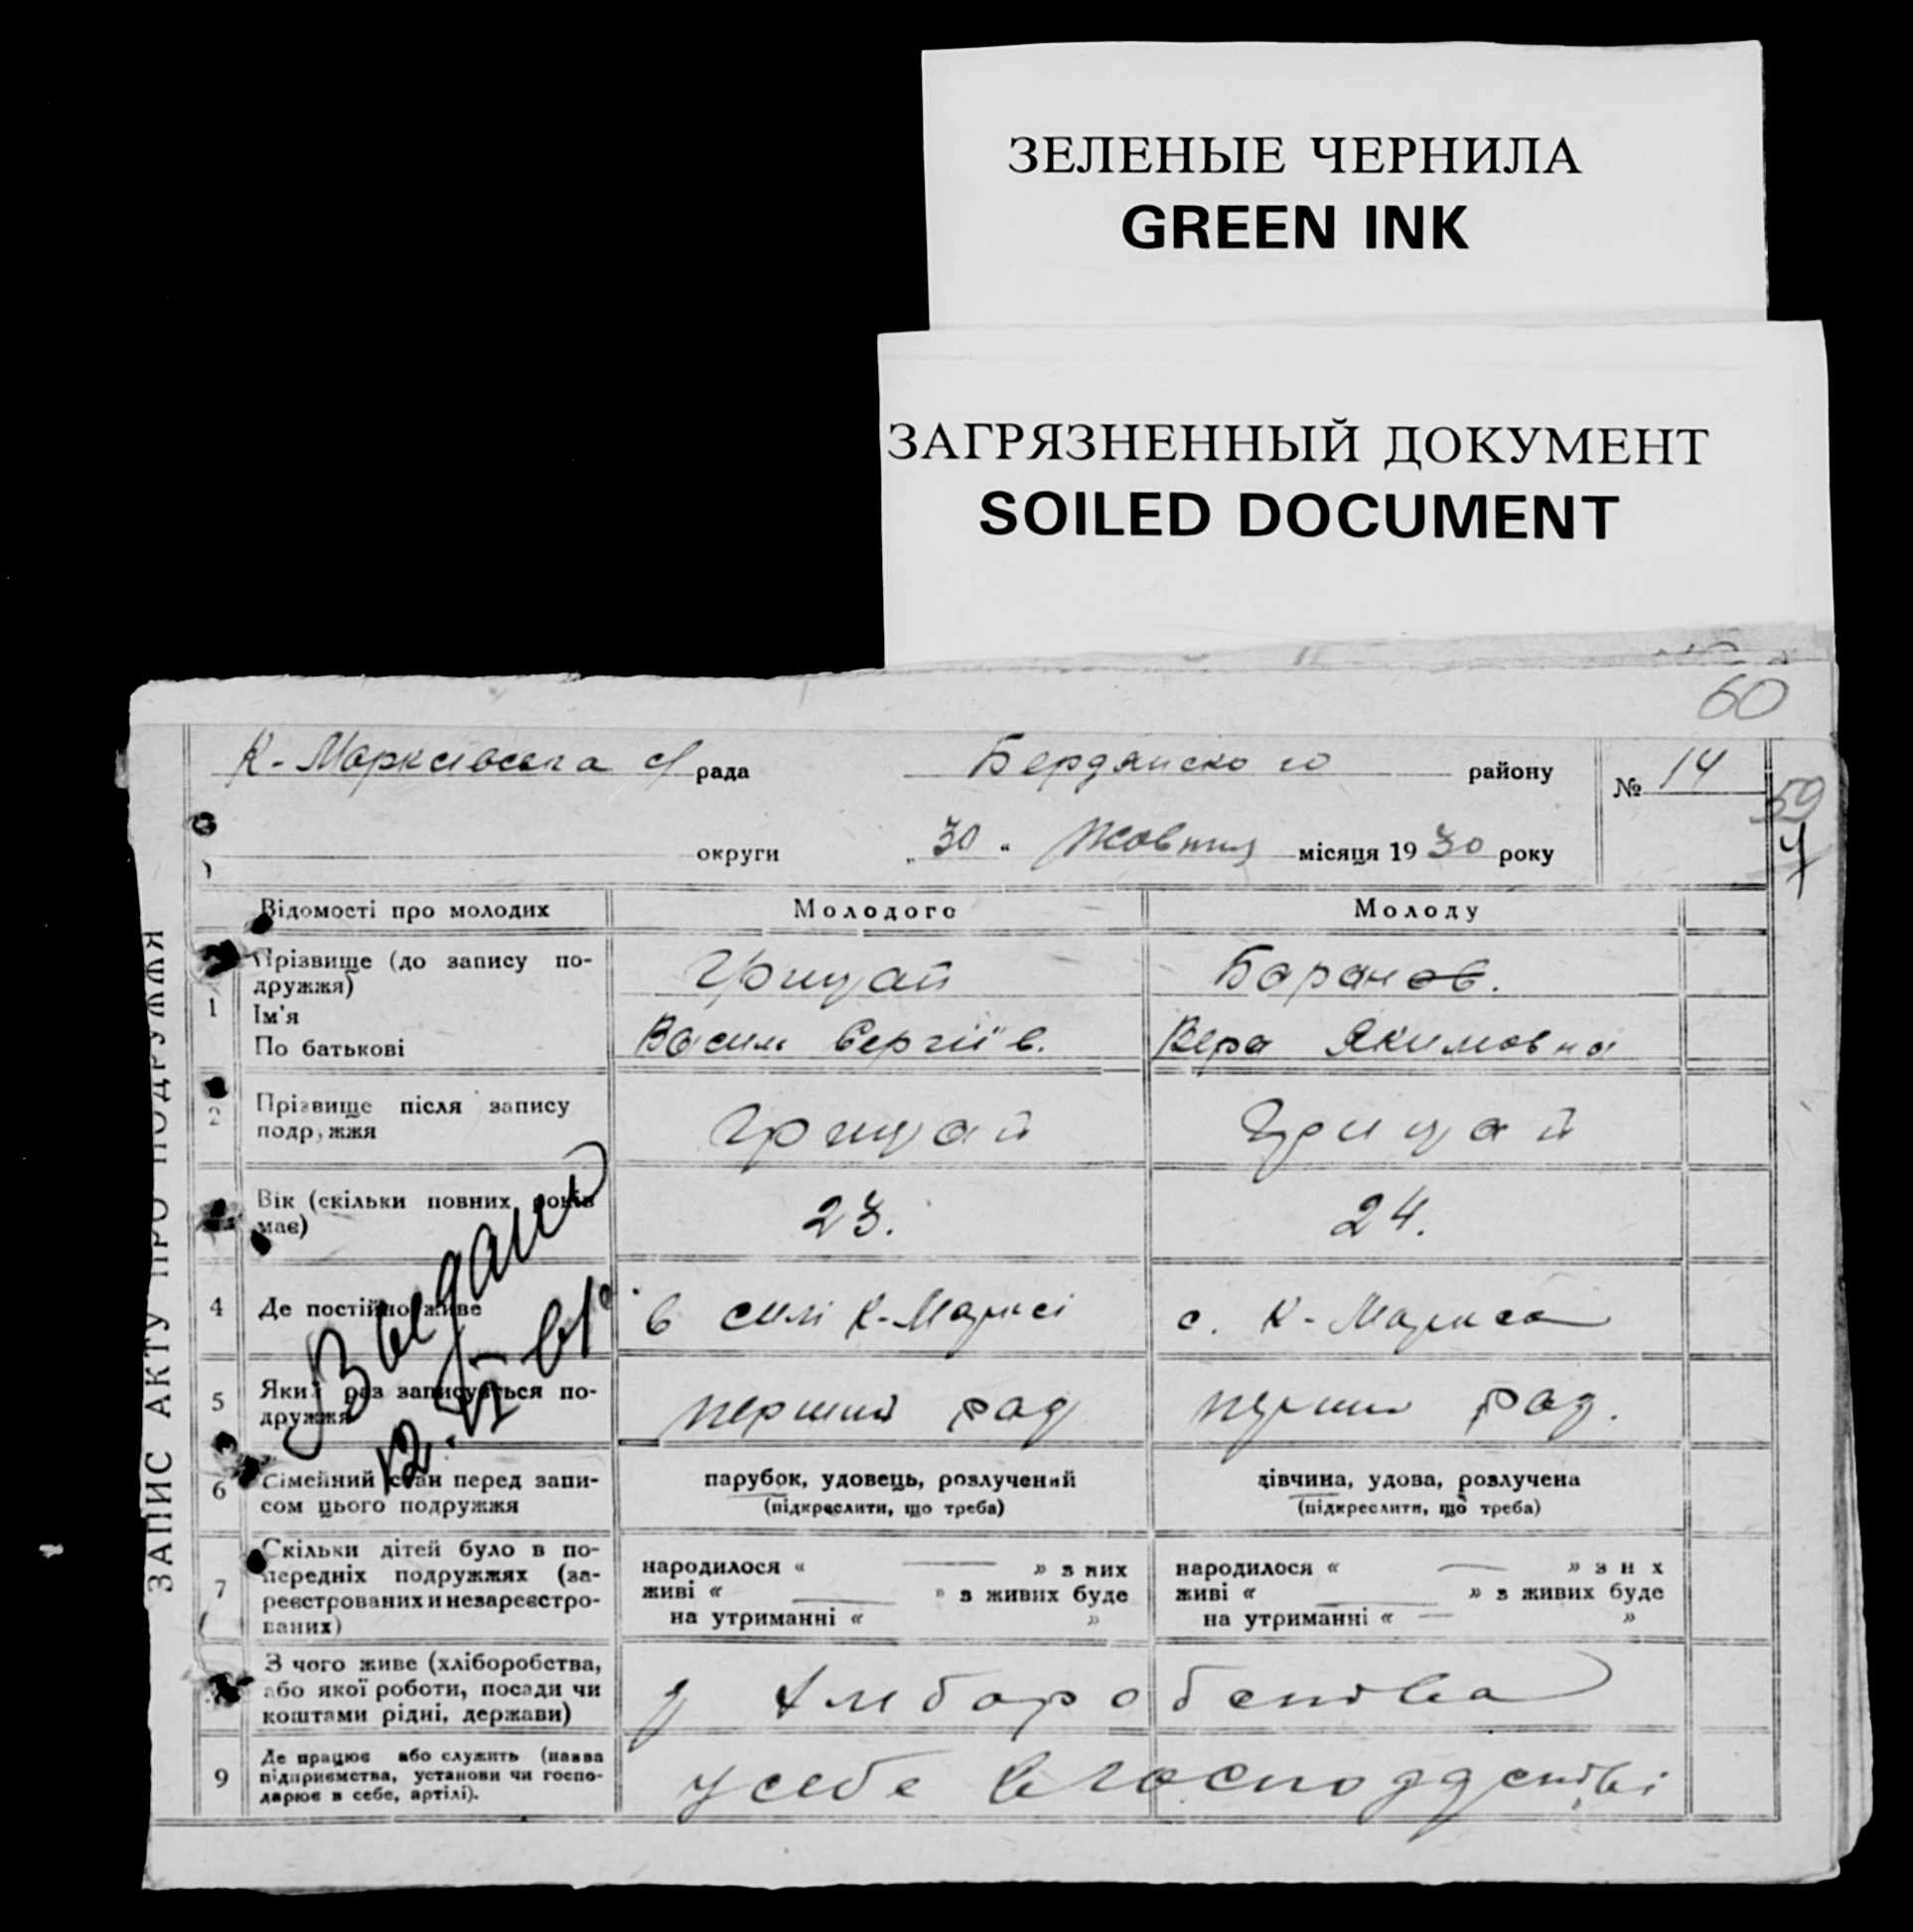 ЗЕЛЕНЫЕ ЧЕРНИЛА
GREEN INK
ЗАГРЯЗНЕННЫЙ ДОКУМЕНТ
SOILED DOCUMENT
60
К-Марксівська с/ рада Бердянского району № 14
59
округи „30“ Жовтня місяця 1930 року
ЗАПИС АКТУ ПРО ПОДРУЖЖЯ
Відомості про молодих Молодого Молоду
1 Прізвище (до запису по- Грицай Баранов.
дружжя)
Ім'я
По батькові Васил Сергіїв. Вера Якимовна
2 Прізвище після запису Грицай Грицай
подружжя
Вік (скільки повних років 23. 24.
має)
4 Де постійно живе в силі К-Марксі с. К-Маркса
5 Який раз записується по- перший раз перший раз.
дружжя
Выдано
12. VI-61г
6 Сімейний стан перед запи- парубок, удовець, розлучений дівчина, удова, розлучена
сом цього подружжя (підкреслити, що треба) (підкреслити, що треба)
7 Скільки дітей було в по- народилося « — » з них народилося « — » з н х
передніх подружжях (за- живі « — » з живих буде живі « — » з живих буде
реєстрованих и незареєстро- на утриманні « » на утриманні « — »
ваних)
З чого живе (хліборобства, з хліборобства
або якої роботи, посади чи
коштами рідні, держави)
9 Де працює або служить (назва у себе в господарстві
підприємства, установи чи госпо-
дарює в себе, артілі).